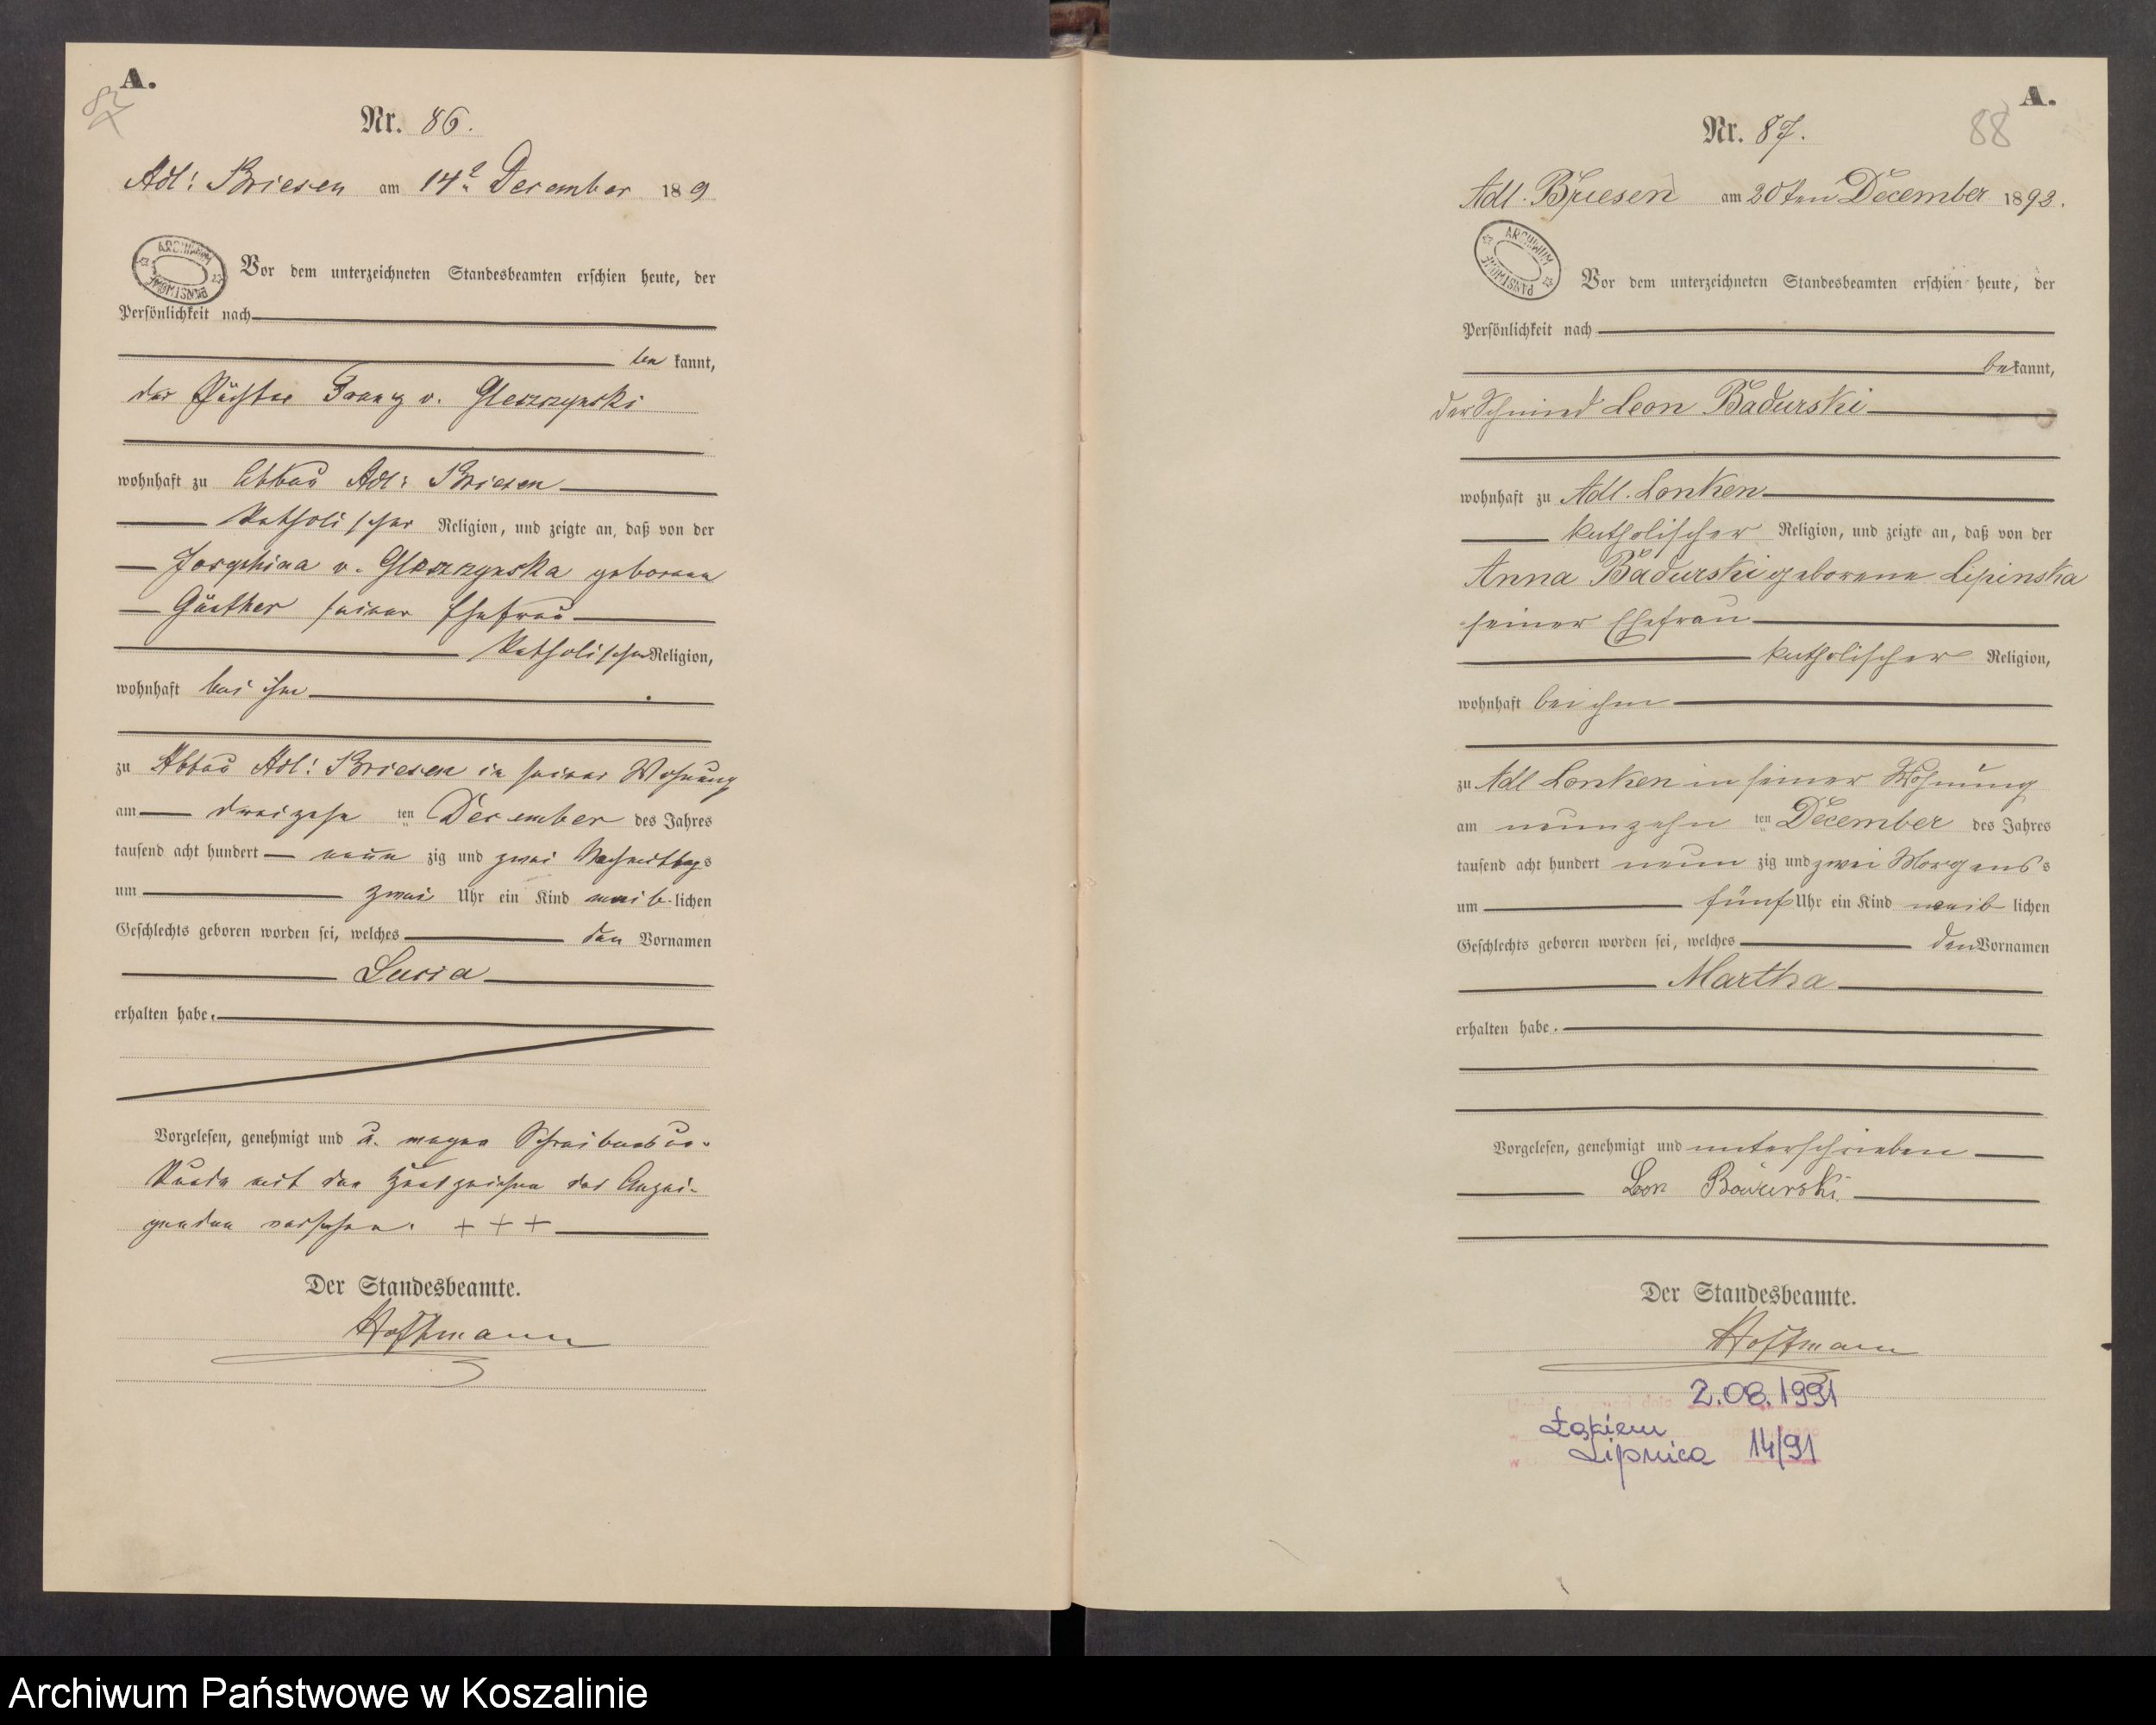 A.
87
Nr. 86.
Adl: Briesen am 14t December 189
ARCHIWUM PAŃSTWOWE
Vor dem unterzeichneten Standesbeamten erschien heute, der
Persönlichkeit nach
be kannt,
der Pächter Franz v.
wohnhaft zu Abbau Adl: Briesen
katholischer Religion, und zeigte an, daß von der
Josephina v. geborene
Günther seiner Ehefrau
katholischer Religion,
wohnhaft bei ihm
zu Abbau Adl: Briesen in seiner Wohnung
am dreizehn ten December des Jahres
tausend acht hundert neun zig und zwei Nachmittags
um zwei Uhr ein Kind weib lichen
Geschlechts geboren worden sei, welches den Vornamen
Lucia
erhalten habe.
Vorgelesen, genehmigt und u. wegen Schreibensun-
kunde mit den Handzeichen des Anzei-
genden versehen. + + +
Der Standesbeamte.
Hoffmann
A.
88
Nr. 87.
Adl. Briesen am 20ten December 1892.
ARCHIWUM PAŃSTWOWE
Vor dem unterzeichneten Standesbeamten erschien heute, der
Persönlichkeit nach
bekannt,
der Schmied Leon Badurski
wohnhaft zu Adl. Lonken
katholischer Religion, und zeigte an, daß von der
Anna Badurski geborene Lipinska
seiner Ehefrau
katholischer Religion,
wohnhaft bei ihm
zu Adl Lonken in seiner Wohnung
am neunzehn ten December des Jahres
tausend acht hundert neun zig und zwei Morgens s
um fünf Uhr ein Kind weib lichen
Geschlechts geboren worden sei, welches den Vornamen
Martha
erhalten habe.
Vorgelesen, genehmigt und unterschrieben
Leon
Der Standesbeamte.
Hoffmann
2.08.1991
Łąkiem
Lipnica 14/91
Archiwum Państwowe w Koszalinie